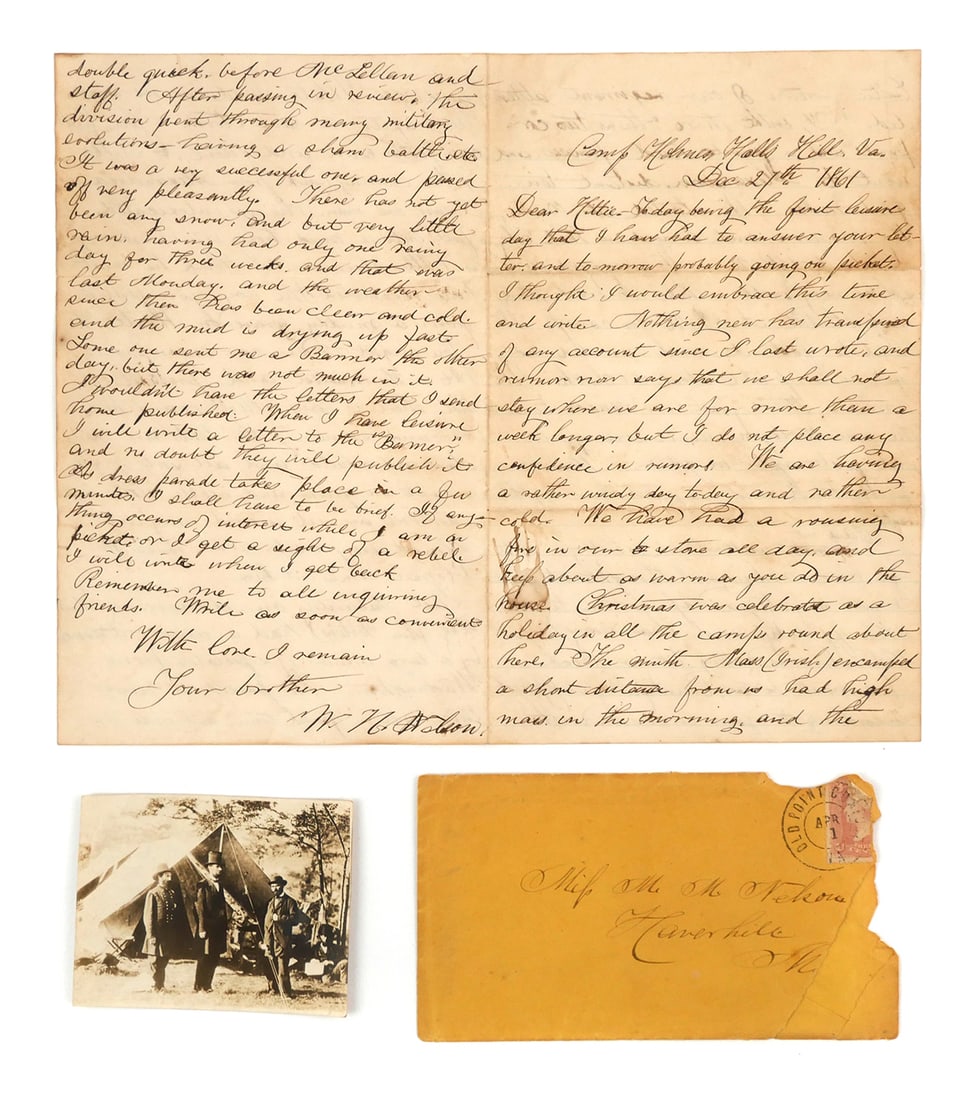 double quick, before McLellan and
staff. After passing in review, the
division went through many military
evolutions – having a sham battle, etc.
It was a very successful one, and passed
off very pleasantly. There has not yet
been any snow, and but very little
rain, having had only one rainy
day for three weeks, and that was
last Monday, and the weather
since then has been clear and cold.
and the mud is drying up fast
Some one sent me a Banner the other
day, but there was not much in it.
I wouldn't have the letters that I send
home published. When I have leisure
I will write a letter to the "Banner,"
and no doubt they will publish it
As dress parade takes place in a few
minutes, I shall have to be brief. If any-
thing occurs of interest while I am on
picket, or I get a sight of a rebel
I will write when I get back
Remember me to all inquiring
friends. Write as soon as convenient
With love I remain
Your brother
W. N. Nelson.
Camp Holmes, Halls Hill, Va.
Dec 27th 1861
Dear Hittie – Today being the first leisure
day that I have had to answer your let-
ter, and to-morrow probably going on picket,
I thought I would embrace this time
and write. Nothing new has transpired
of any account since I last wrote, and
rumor now says that we shall not
stay where we are for more than a
week longer, but I do not place any
confidence in rumors. We are having
a rather windy day to-day and rather
cold. We have had a rousing
fire in our stove all day, and
keep about as warm as you do in the
house. Christmas was celebrated as a
holiday in all the camps round about
here. The ninth Mass (Irish) encamped
a short distance from us had high
mass in the morning, and the
OLD POINT CO
APR
1
Miss M. M. Nelson
Haverhill
M